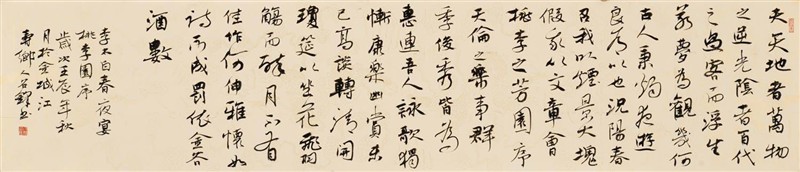 夫天地者萬物
之逆光陰者百代
之過客而浮生
若夢為觀幾何
古人秉燭夜遊
良有以也況陽春
召我以煙景大塊
假我以文章會
桃李之芳園序
天倫之樂事群
季俊秀皆為
惠連吾人詠歌獨
慚康樂幽賞未
已高談轉清開
瓊筵以坐花飛羽
觴而醉月不有
佳作何伸雅懷如
詩不成罰依金谷
酒數
李太白春夜宴
桃李園序
歲次壬辰年秋
月於金城江